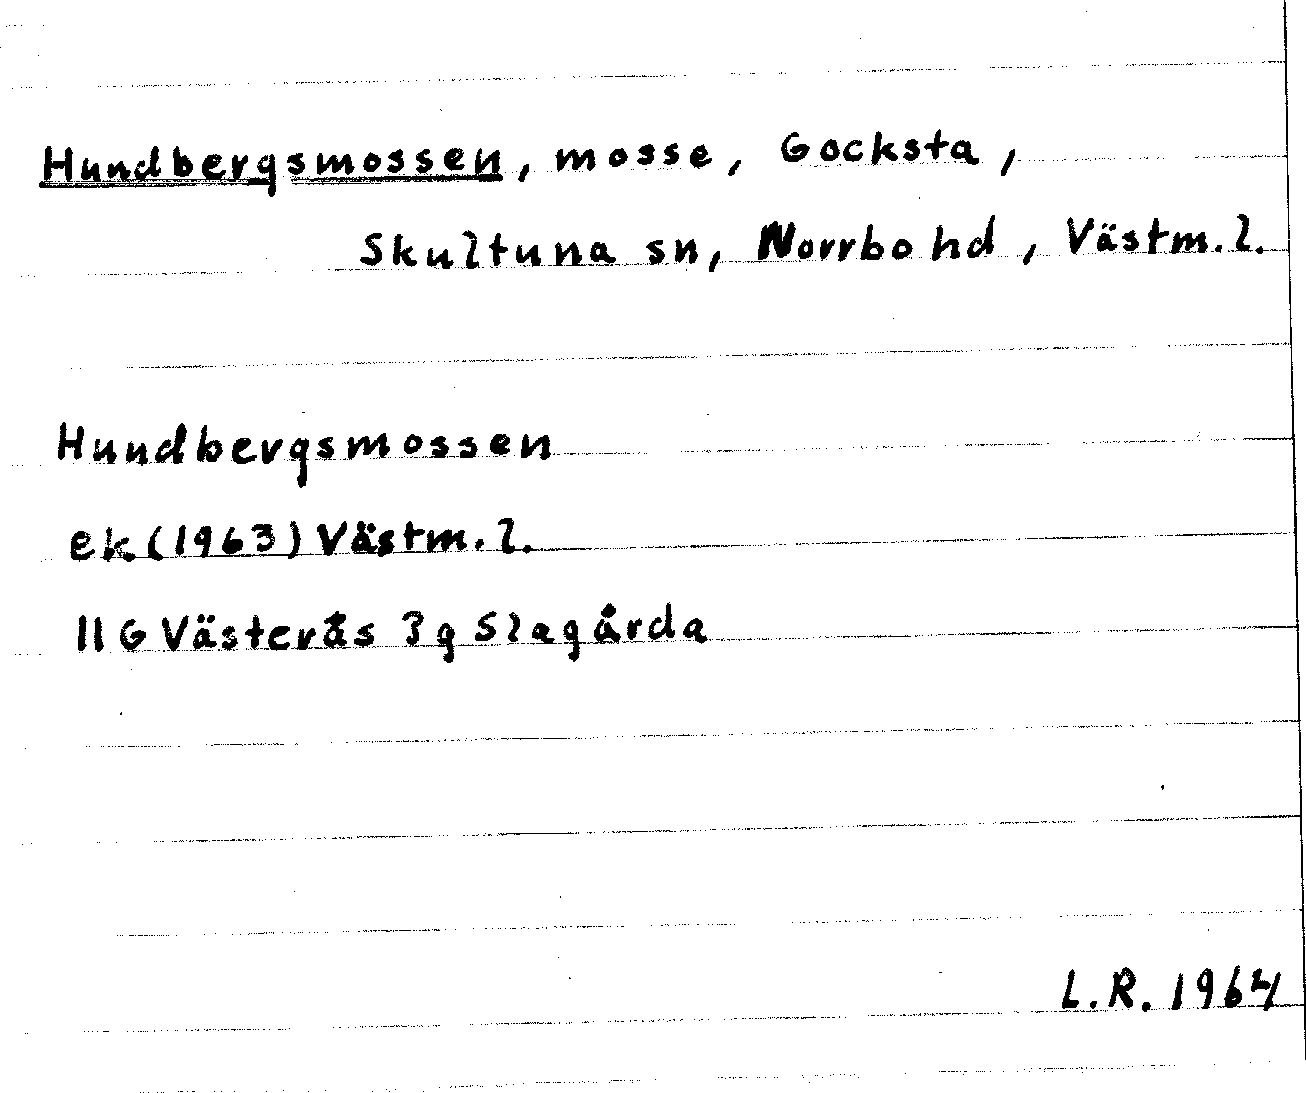 Hundbergsmossen, mosse, Gocksta,
Skultuna sn, Norrbo hd, Västm. l.
Hundbergsmossen
ek (1963) Västm. l.
11 G Västerås 3g Slagårda
L.R. 1964